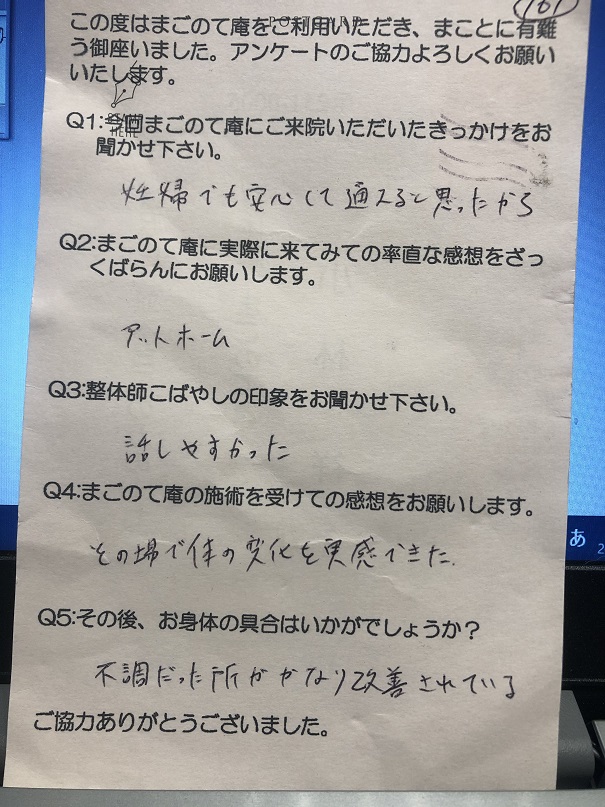 POSTCARD
101
この度はまごのて庵をご利用いただき、まことに有難
う御座いました。アンケートのご協力よろしくお願い
いたします。
Q1:今回まごのて庵にご来院いただいたきっかけをお
聞かせ下さい。
妊婦でも安心して通えると思ったから
Q2:まごのて庵に実際に来てみての率直な感想をざっ
くばらんにお願いします。
アットホーム
Q3:整体師こばやしの印象をお聞かせ下さい。
話しやすかった
Q4:まごのて庵の施術を受けての感想をお願いします。
その場で体の変化を実感できた.
Q5:その後、お身体の具合はいかがでしょうか？
不調だった所がかなり改善されている
ご協力ありがとうございました。
あ
2